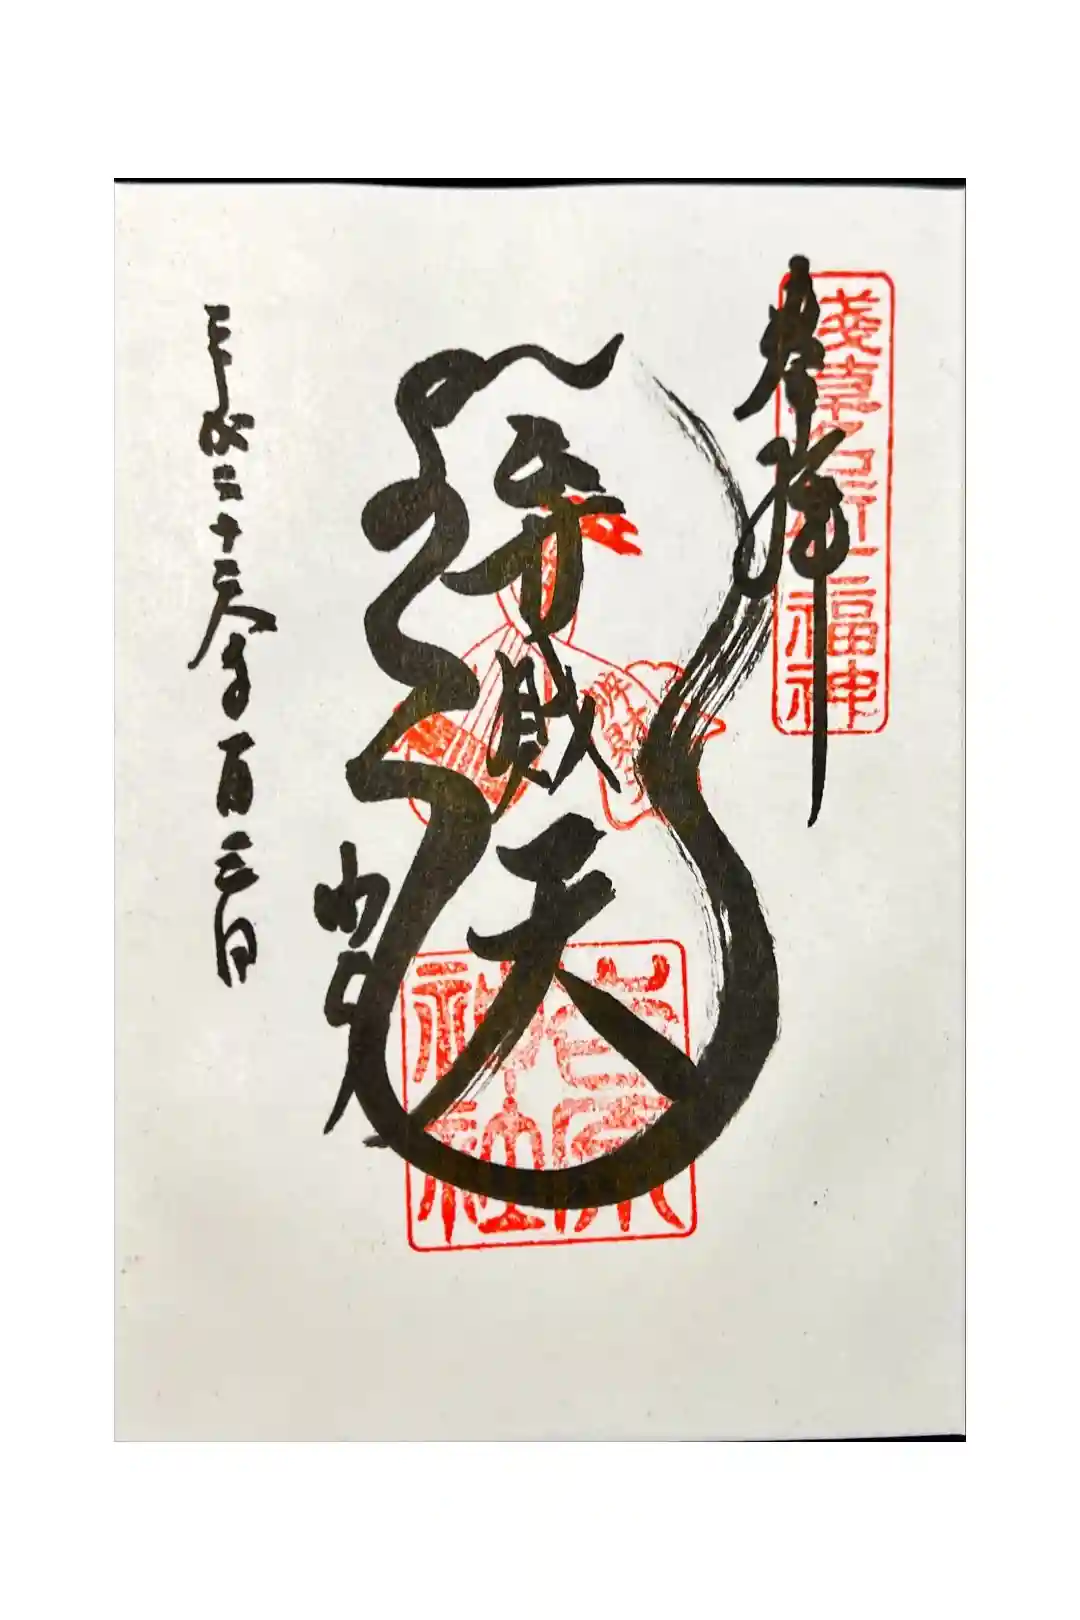 奉拝
淺草名所七福神
弁財天
辨財天
吉原神社
平成二十
年一月三日